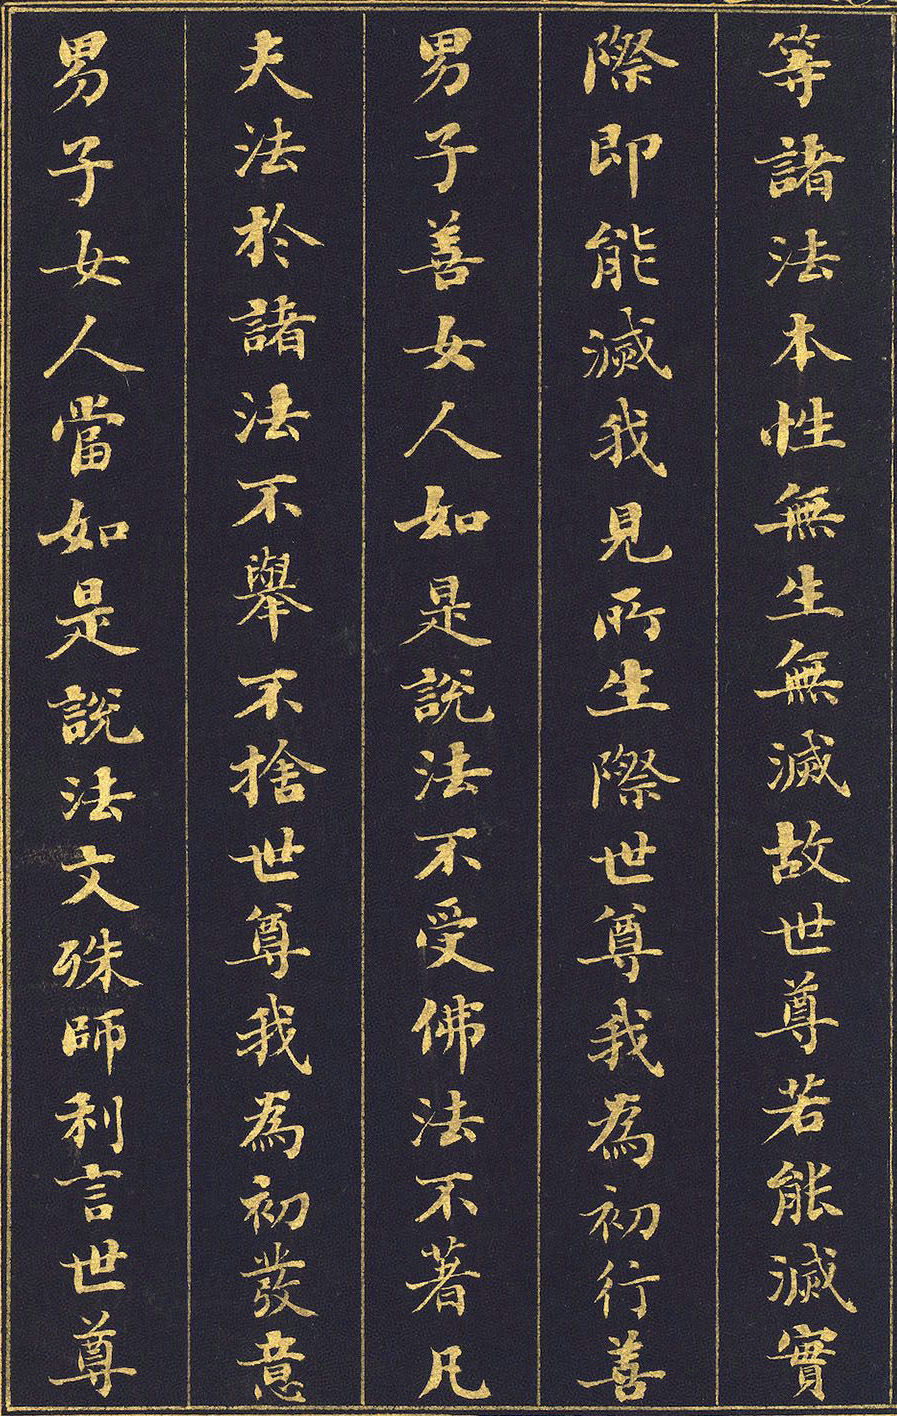 等諸法本性無生無滅故世尊若能滅實
際即能滅我見所生際世尊我為初行善
男子善女人如是說法不受佛法不著凡
夫法於諸法不舉不捨世尊我為初發意
男子女人當如是說法文殊師利言世尊